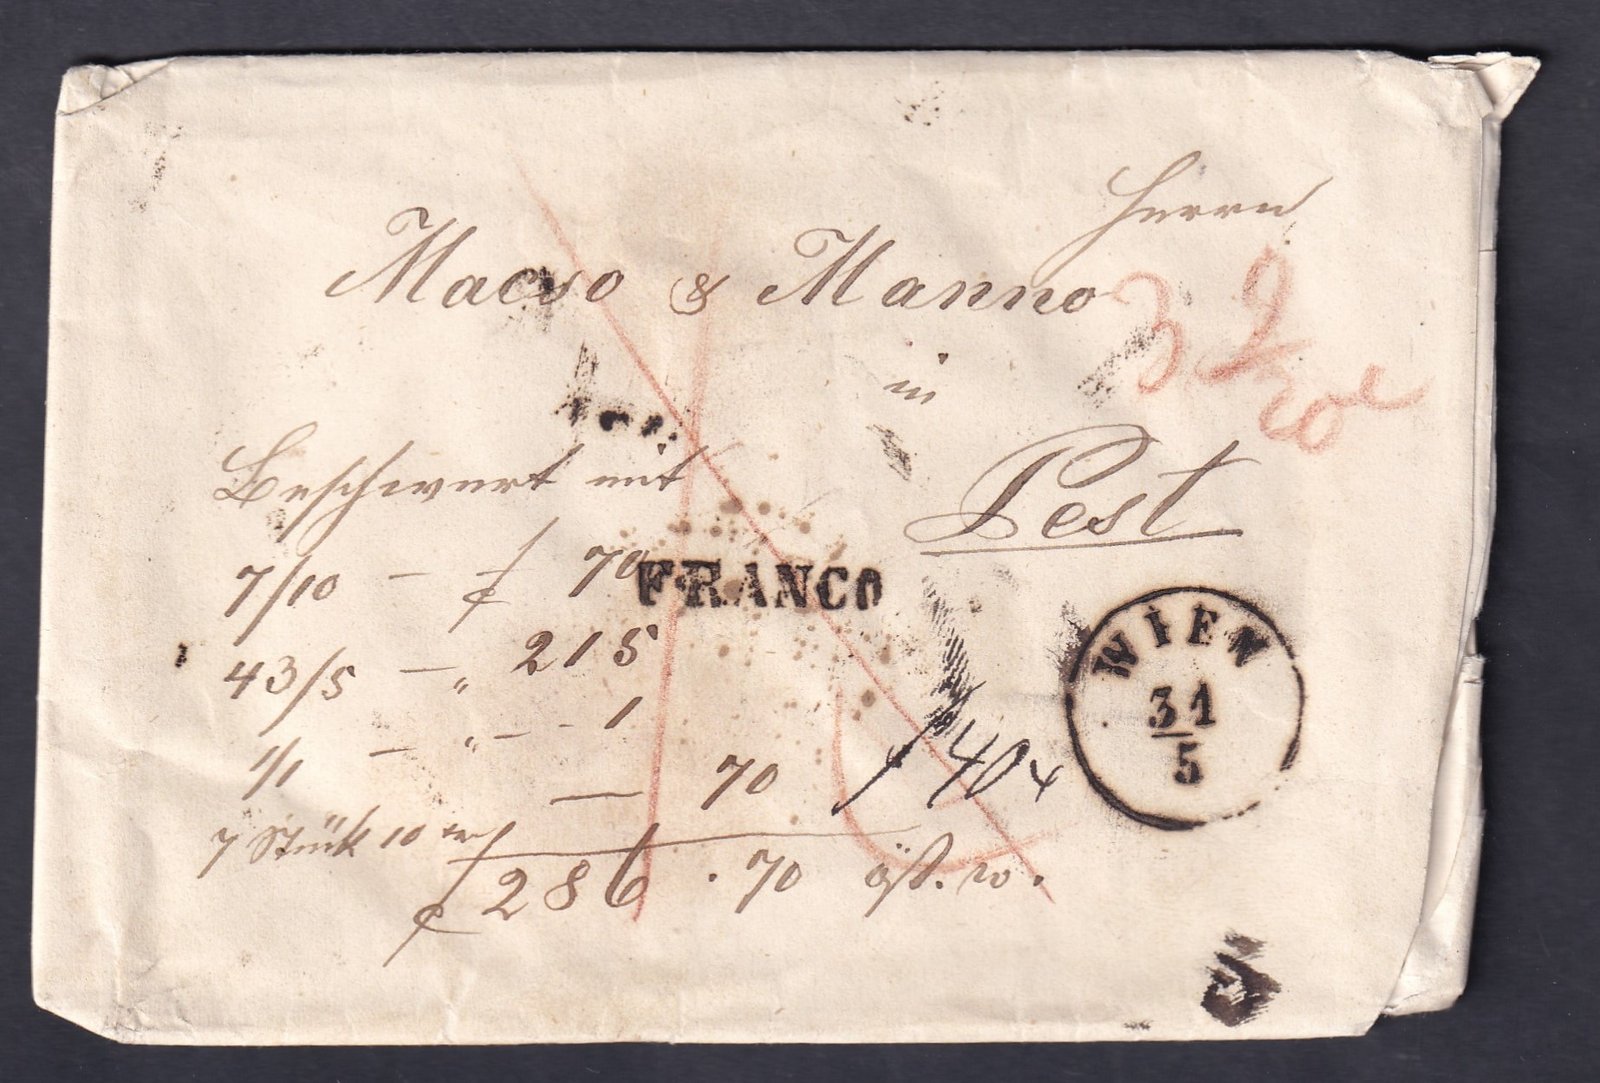 Herrn
Macso & Manno
in
Pest
Beschwert mit
7/10 — f 70
43/5 — " 215
1/1 — " - - 1
7 Stück 10 xr — 70
f 286 . 70 öst. W.
FRANCO
f 40 x
WIEN
31
5